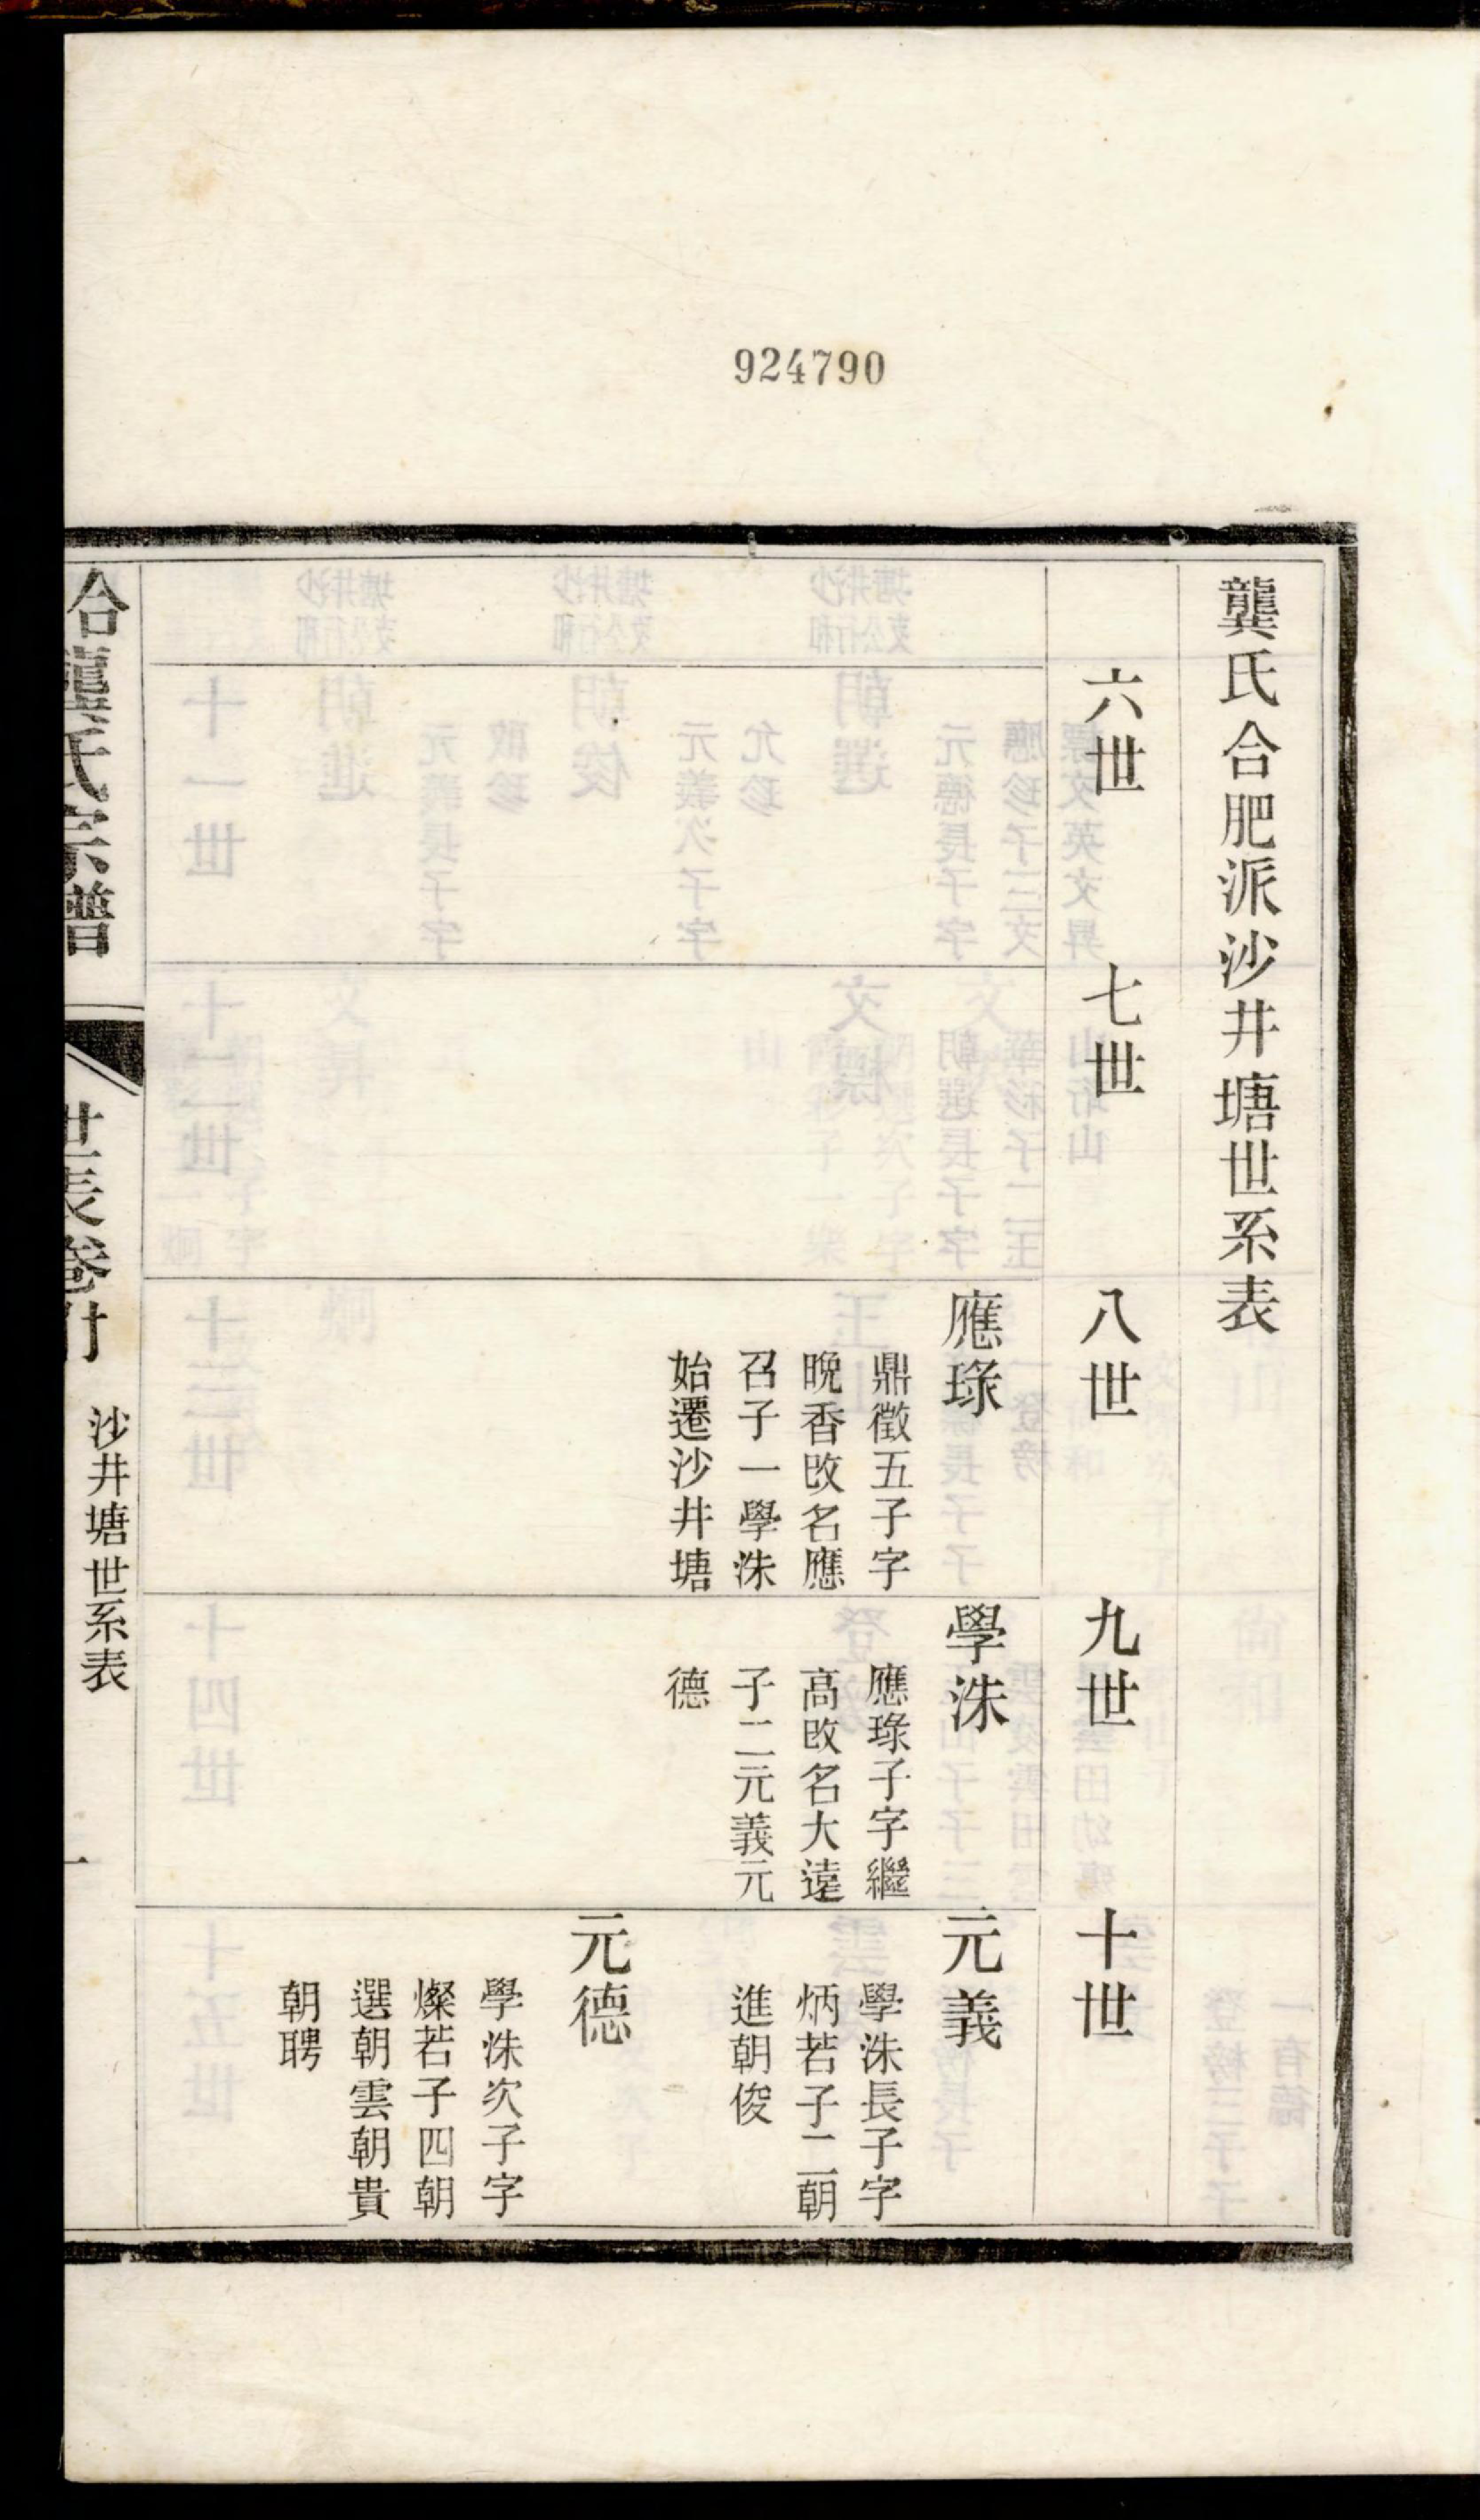 924790
龔氏合肥派沙井塘世系表
六世
七世
八世
九世
十世
應琭
鼎徵五子字
晩香改名應
召子一學洙
始遷沙井塘
學洙
應琭子字繼
高改名大遠
子二元義元
德
元義
學洙長子字
炳若子二朝
進朝俊
元德
學洙次子字
燦若子四朝
選朝雲朝貴
朝聘
合龔氏宗譜
世表卷什
沙井塘世系表
一